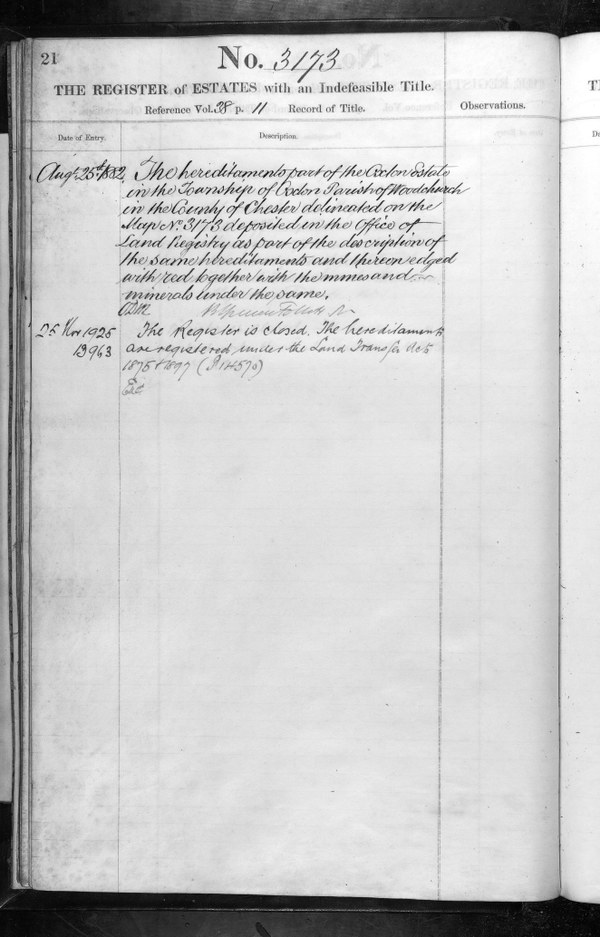 21
No. 3173
THE REGISTER of ESTATES with an Indefeasible Title.
Reference Vol. 38 p. 11 Record of Title.
Observations.
Date of Entry.
Description.
Augt. 25th 1882
The hereditaments part of the Oxton Estate
in the Township of Oxton Parish of Woodchurch
in the County of Chester delineated on the
Map No. 3173 deposited in the Office of
Land Registry as part of the description of
the same hereditaments and thereon edged
with red together with the mines and
minerals under the same.
25 Nov 1925
The Register is closed. The hereditaments
13963
are registered under the Land Transfer Acts
1875 & 1897 (P 114570)